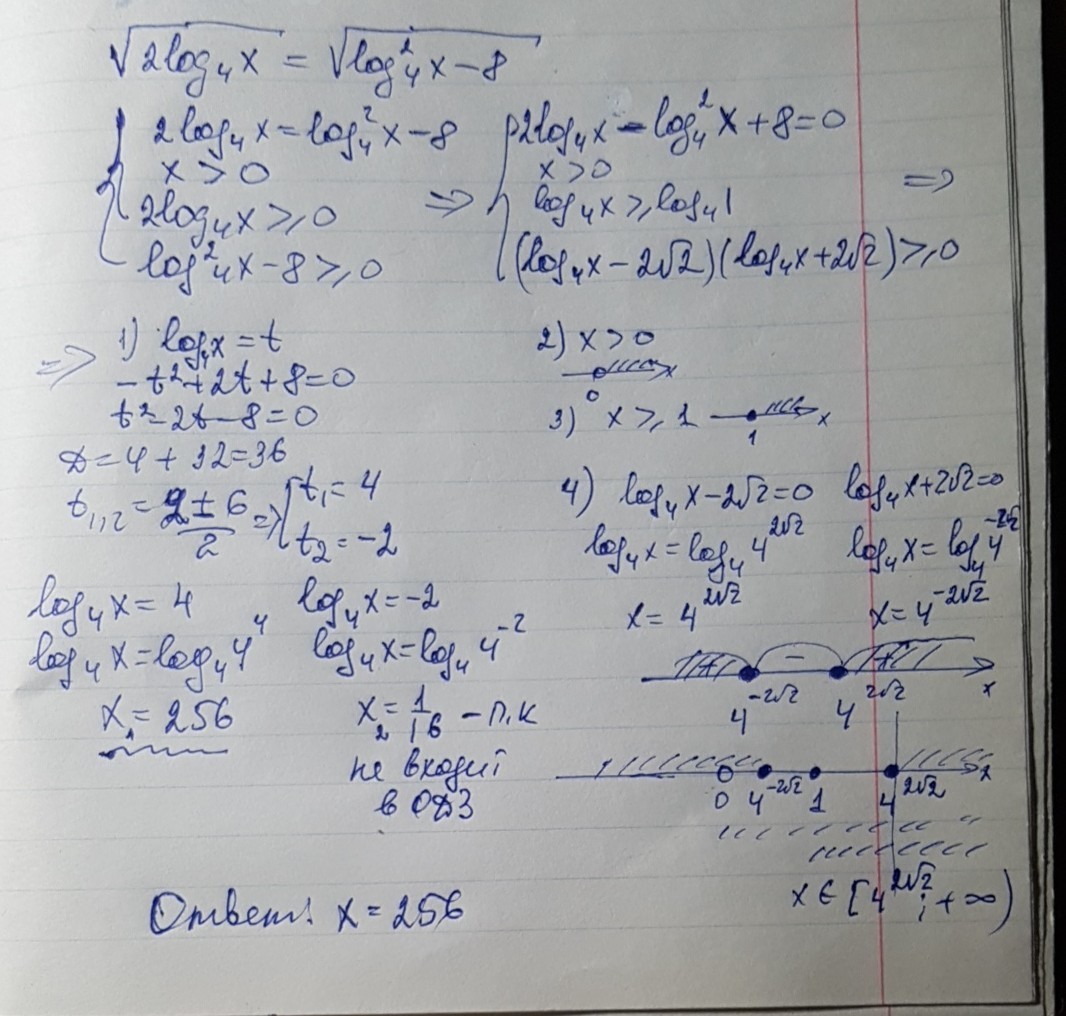 √(2log₄x) = √(log₄²x − 8)
{ 2log₄x = log₄²x − 8
x > 0
2log₄x ⩾ 0
log₄²x − 8 ⩾ 0
⇒ { 2log₄x − log₄²x + 8 = 0
x > 0
log₄x ⩾ log₄1
(log₄x − 2√2)(log₄x + 2√2) ⩾ 0
⇒
⇒ 1) log₄x = t
−t² + 2t + 8 = 0
t² − 2t − 8 = 0
D = 4 + 32 = 36
t₁,₂ = (2 ± 6)/2 ⇒ [ t₁ = 4
t₂ = −2
log₄x = 4
log₄x = log₄4⁴
x₁ = 256
log₄x = −2
log₄x = log₄4⁻²
x₂ = 1/16 − П.К
не входит
в ОДЗ
2) x > 0
0 x
3) x ⩾ 1
1 x
4) log₄x − 2√2 = 0 log₄x + 2√2 = 0
log₄x = log₄4^(2√2) log₄x = log₄4^(−2√2)
x = 4^(2√2) x = 4^(−2√2)
+ − +
4^(−2√2) 4^(2√2) x
0 4^(−2√2) 1 4^(2√2) x
x ∈ [4^(2√2); +∞)
Ответ: x = 256